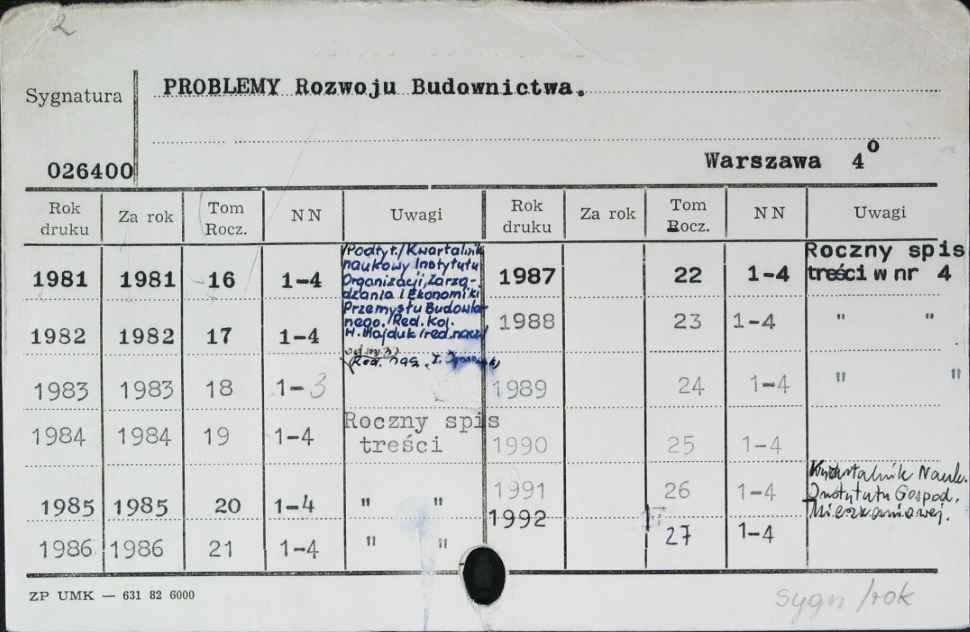 2
Sygnatura PROBLEMY Rozwoju Budownictwa.
026400 Warszawa 4º
Rok druku Za rok Tom Rocz. NN Uwagi Rok druku Za rok Tom Rocz. NN Uwagi
1981 1981 16 1-4 /Podtyt./Kwartalnik
naukowy Instytutu
Organizacji, Zarzą-
dzania i Ekonomiki
Przemysłu Budowla-
nego. /Red. Kol.
H. Hajduk/red. nacz/
1982 1982 17 1-4
Red. nacz.
1983 1983 18 1-3
1984 1984 19 1-4 Roczny spis
treści
1985 1985 20 1-4 " "
1986 1986 21 1-4 " "
1987 22 1-4 Roczny spis
treści w nr 4
1988 23 1-4 " "
1989 24 1-4 " "
1990 25 1-4
1991 26 1-4 Kwartalnik Nauk.
Instytutu Gospod.
Mieszkaniowej.
1992 27 1-4
ZP UMK — 631 82 6000
sygn /rok